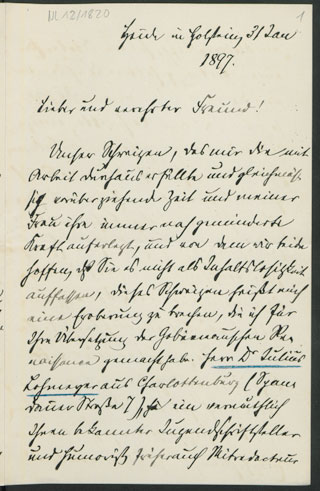 NL 12/1820
1
Heide in Holstein, 31 Jan
1897.
Lieber und verehrter Freund!
Unser Schweigen, das mir die mit
Arbeit durchaus erfüllte und gleichmäs-
sig vorüberziehende Zeit und meiner
Frau ihre immer noch geminderte
Kraft auferlegt, und von dem wir beide
hoffen, daß Sie es nicht als Inhaltslosigkeit
auffassen, dieses Schweigen heißt mich
eine Eroberung zu brechen, die ich für
Ihre Übersetzung der Gobineauschen Re-
naissance gemacht habe. Herr Dr Julius
Lohmeyer aus Charlottenburg (
Straße 7), ein vermuthlich
Ihnen bekannter Jugendschriftsteller
und Humorist, früher auch Mitredacteur